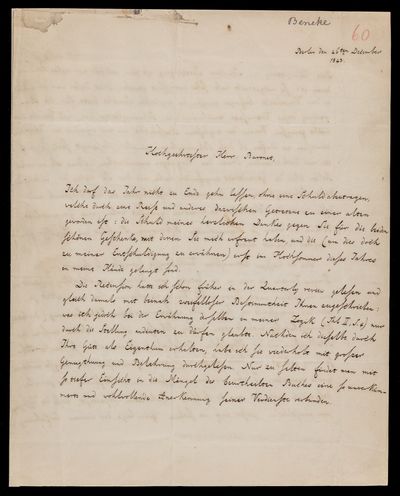 Beneke
60
Berlin den 26sten December
1843.
Hochgeehrtester Herr Baronet,
Ich darf das Jahr nicht zu Ende gehn lassen, ohne eine Schuld abzutragen,
welche durch eine Reise und anderes dazwischen Getretene zu einer alten
geworden ist: die Schuld meines herzlichen Dankes gegen Sie für die beiden
schönen Geschenke, mit denen Sie mich erfreut haben, und die (um dies doch
zu meiner Entschuldigung zu erwähnen) erst im Hochsommer dieses Jahres
in meine Hände gelangt sind.
Die Recension hatte ich schon früher in der Quarterly review gelesen und
gleich damals mit beinah zweifelloser Bestimmtheit Ihnen zugeschrieben:
was ich jedoch bei der Erwähnung derselben in meiner Logik (Thl II, S.) nur
durch die Stellung andeuten zu dürfen glaubte. Nachdem ich dieselbe durch
Ihre Güte als Eigenthum erhalten, habe ich sie wiederholt mit großer
Genugthuung und Belehrung durchgelesen. Nur zu selten findet man mit
so tiefer Einsicht in die Mängel des beurtheilten Buches eine so
und wohlwollende Anerkennung seiner Verdienste verbunden.